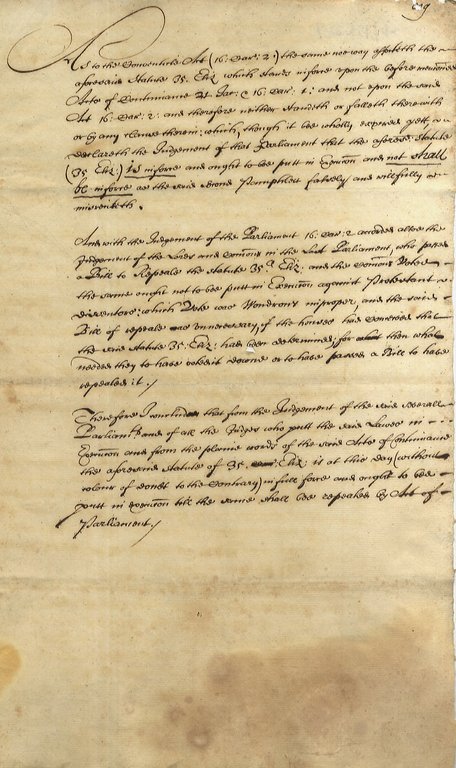 9
As to the Conventicle Act (16. Car: 2:) the same noe way affecteth the
aforesaid Statute 35. Eliz which stands inforce upon the before mentioned
Acts of Continuance 21. Jac: & 16 Car: 1: and not upon the said
Act 16. Car: 2: and therefore neither standeth or falleth therewith
or by any clause therein; which, though it bee wholly expired yett
declareth the Judgement of that Parliament that the aforesd. statute
(35. Eliz:) is inforce and ought to bee putt in Execucon and not shall
be inforce as the said second Pamphlett falsely and willfully
misreciteth.
And with the Judgement of the Parliament 16. Car: 2 accorded alsoe the
Judgement of the Lords and Comons in the last Parliament, who passed
a Bill to Repeale the statute 35.º Eliz: and the Comons Voted
the same ought not to bee putt in Execucon against Protestant
dissentors; which Vote was Wondrous improper, and the said
Bill of repeale was unnecessary, if the houses had conceived that
the said statute 35. Eliz: had been determined; for what then what
needed they to have voted it or to have passed a Bill to have
repealed it./
Therefore I conclude that from the Judgement of the said severall
Parliamts. and of all the Judges who putt the said Lawes in
Execucon and from the plaine words of the said Acts of Continuance
the aforesaid statute of 35. Eliz: is at this day (without
colour of doubt to the Contrary) in full force and ought to bee
putt in execucon till the same shall bee repealed by Act of
Parliament./